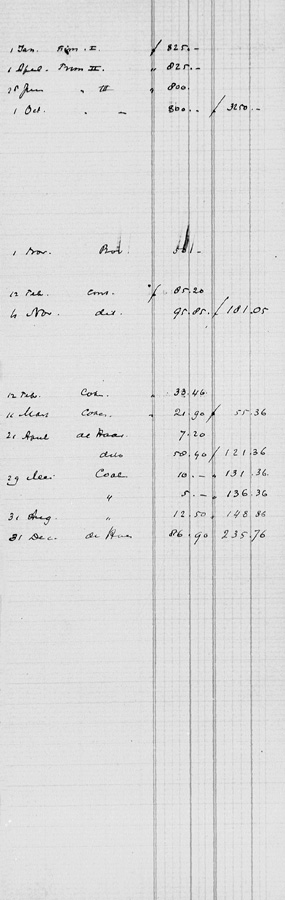 1 Jan. Rem. I. f 825.-
1 April. Rem II. " 825.-
25 Juni " III " 800.
1 Oct. " - 800.- f 3250.-
1 Nov.
12 Feb. Cons. f 85.20
4 Nov. det. 95.85. f 181.05
12 Feb. Cok. 33.46
11 Maart Cokes. " 21.90 f 55.36
21 April de Haas. 7.20
dito 58.40 f 121.36
29 Mei Coal 10.- " 131.36
" 5.- " 136.36
31 Aug. " 12.50 " 148.86
31 Dec. de Haas 86.90 235.76